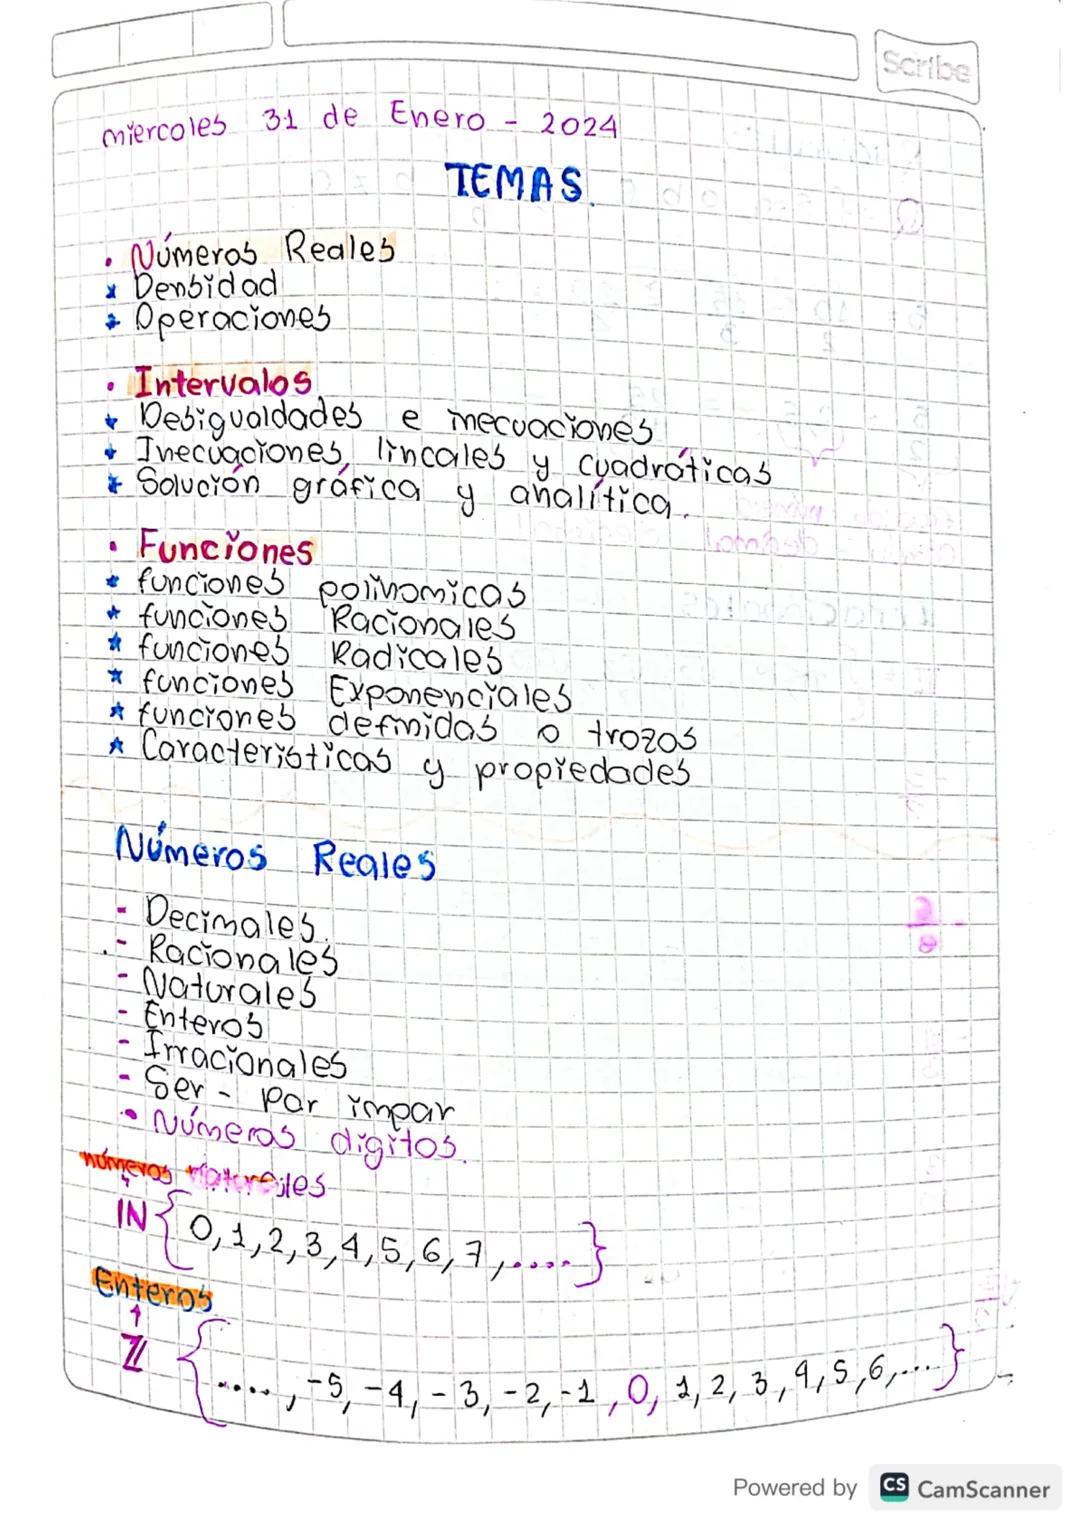 Scribe
miercoles 31 de Enero - 2024
TEMAS.
• Números Reales
* Densidad
* Operaciones
• Intervalos
* Desigualdades e inecuaciones
* Inecuaciones, lineales y cuadráticas
* Solución gráfica y analítica.
• Funciones
* funciones polinomicas
* funciones Racionales
* funciones Radicales
* funciones Exponenciales
* funciones definidas a trozos
* Caracteristicas y propiedades
Números Reales
- Decimales.
- Racionales
- Naturales
- Enteros
- Irracionales
- Ser - par impar
• Números digitos.
números naturales
IN { 0,1,2,3,4,5,6,7,.... }
Enteros
ℤ { ...., -5, -4, -3, -2, -1, 0, 1, 2, 3, 4, 5, 6, .... }
Powered by CS CamScanner